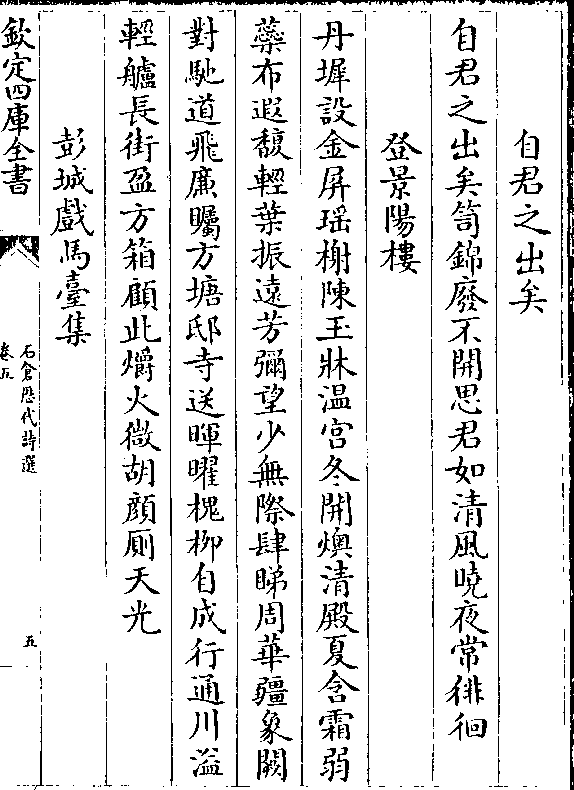 自君之出矣
自君之出矣笥錦廢不開思君如清風曉夜常徘徊
登景陽樓
丹墀設金屏瑶榭陳玉牀温宫冬開燠清殿夏含霜弱
蘂布遐馥輕葉振遠芳彌望少無際肆睇周華疆象闕
對馳道飛廉矚方塘邸寺送暉曜槐栁自成行通川溢
輕艫長街盈方箱顧此爝火微胡顔厠天光
彭城戲馬臺集
欽定四庫全書
石倉歷代詩選
卷五
五